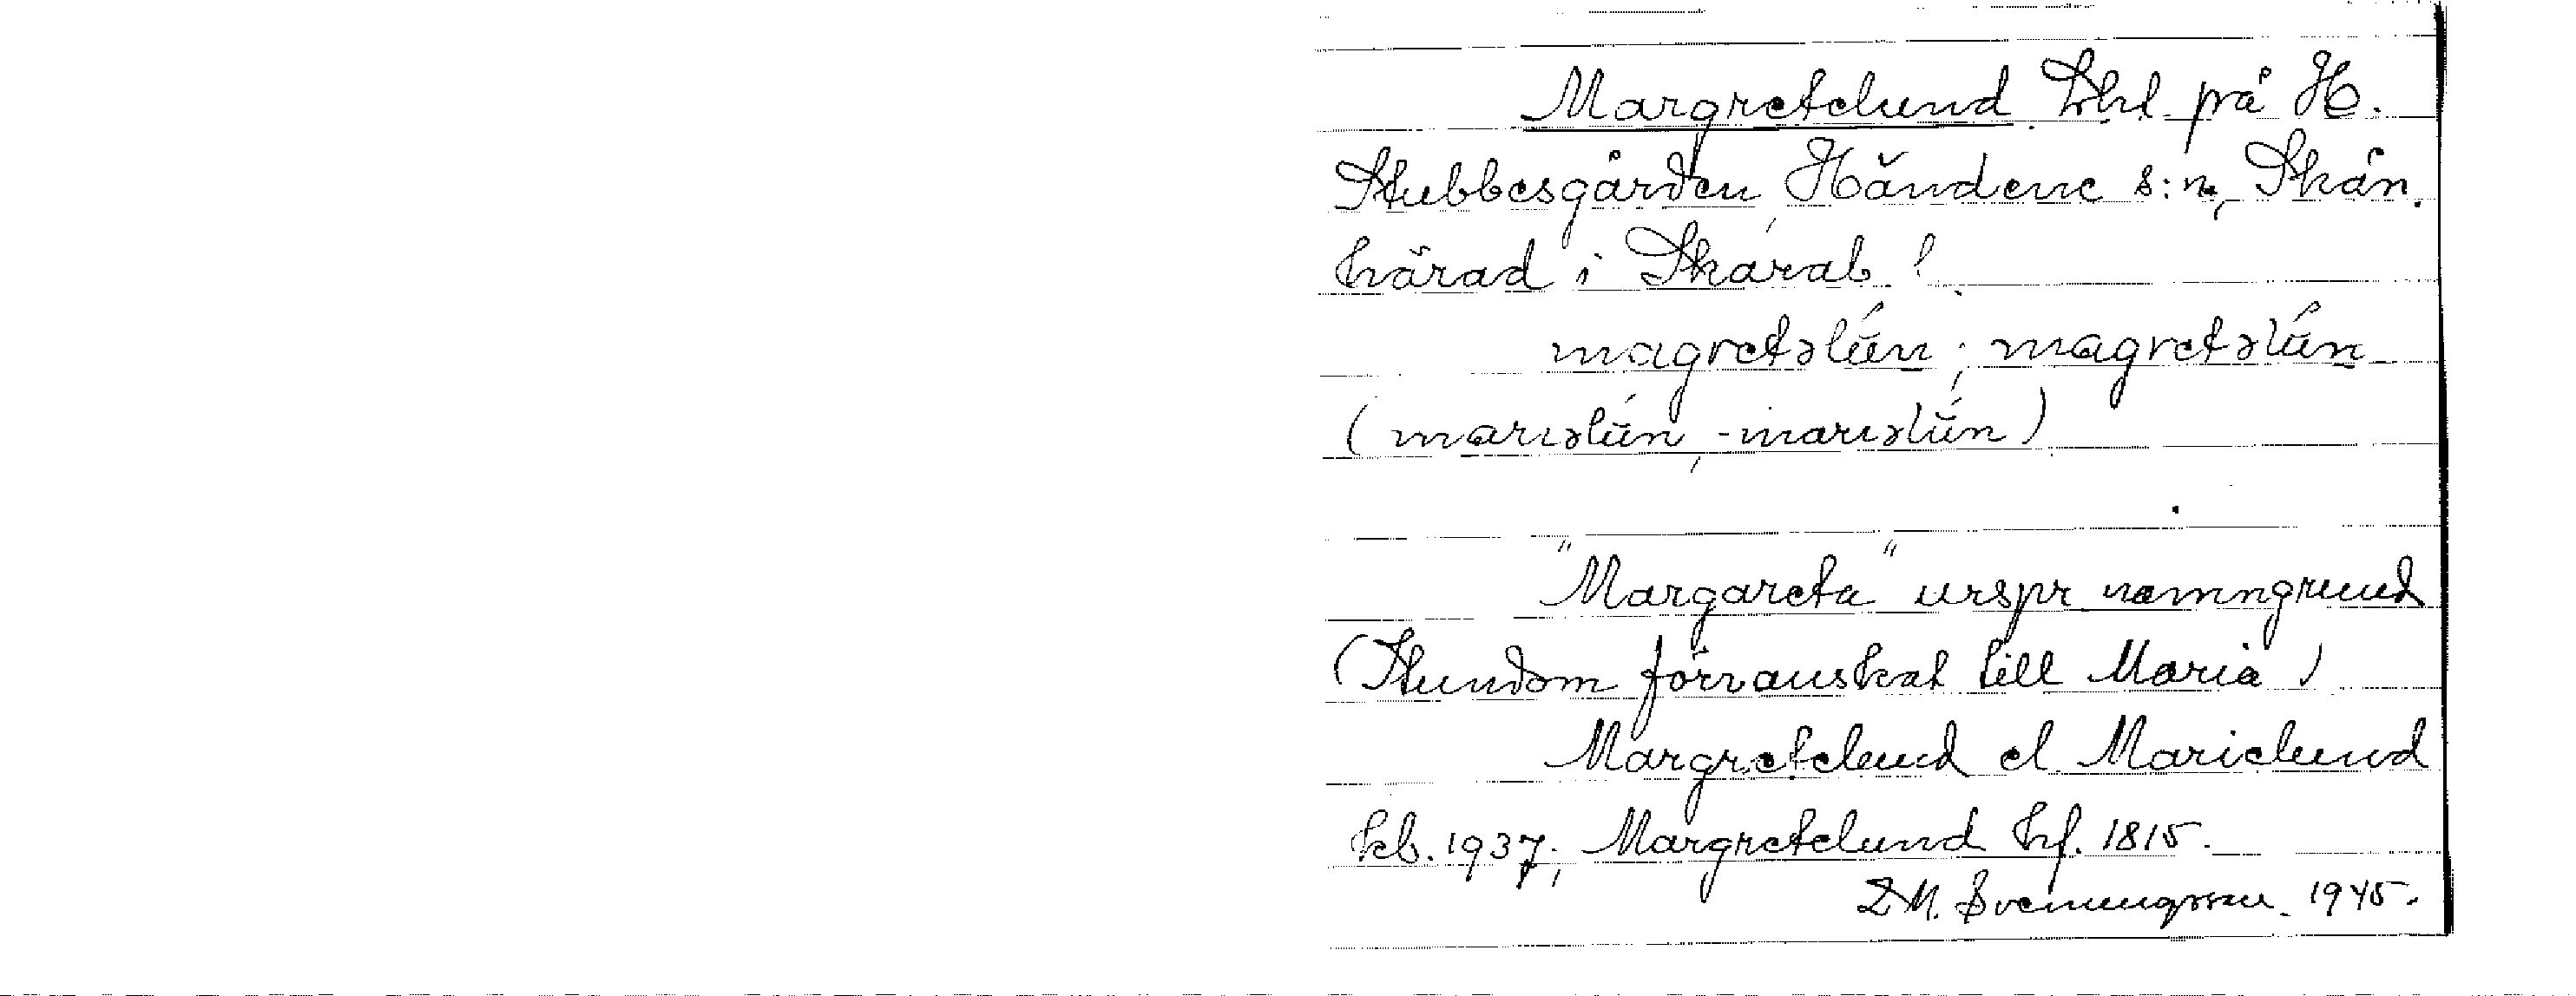 Margretelund Lht på H.
Stubbesgården, Händene s:n, Skån.
härad i Skarab. l.
magretəlún; magretəlún
(mariəlún, -mariəlún)
"Margareta" urspr namngrund
(Stundom förvanskat till Maria)
Margretelund el Marielund
kb. 1937; Margretelund hf. 1815.
D M. Svenungsson. 1945.